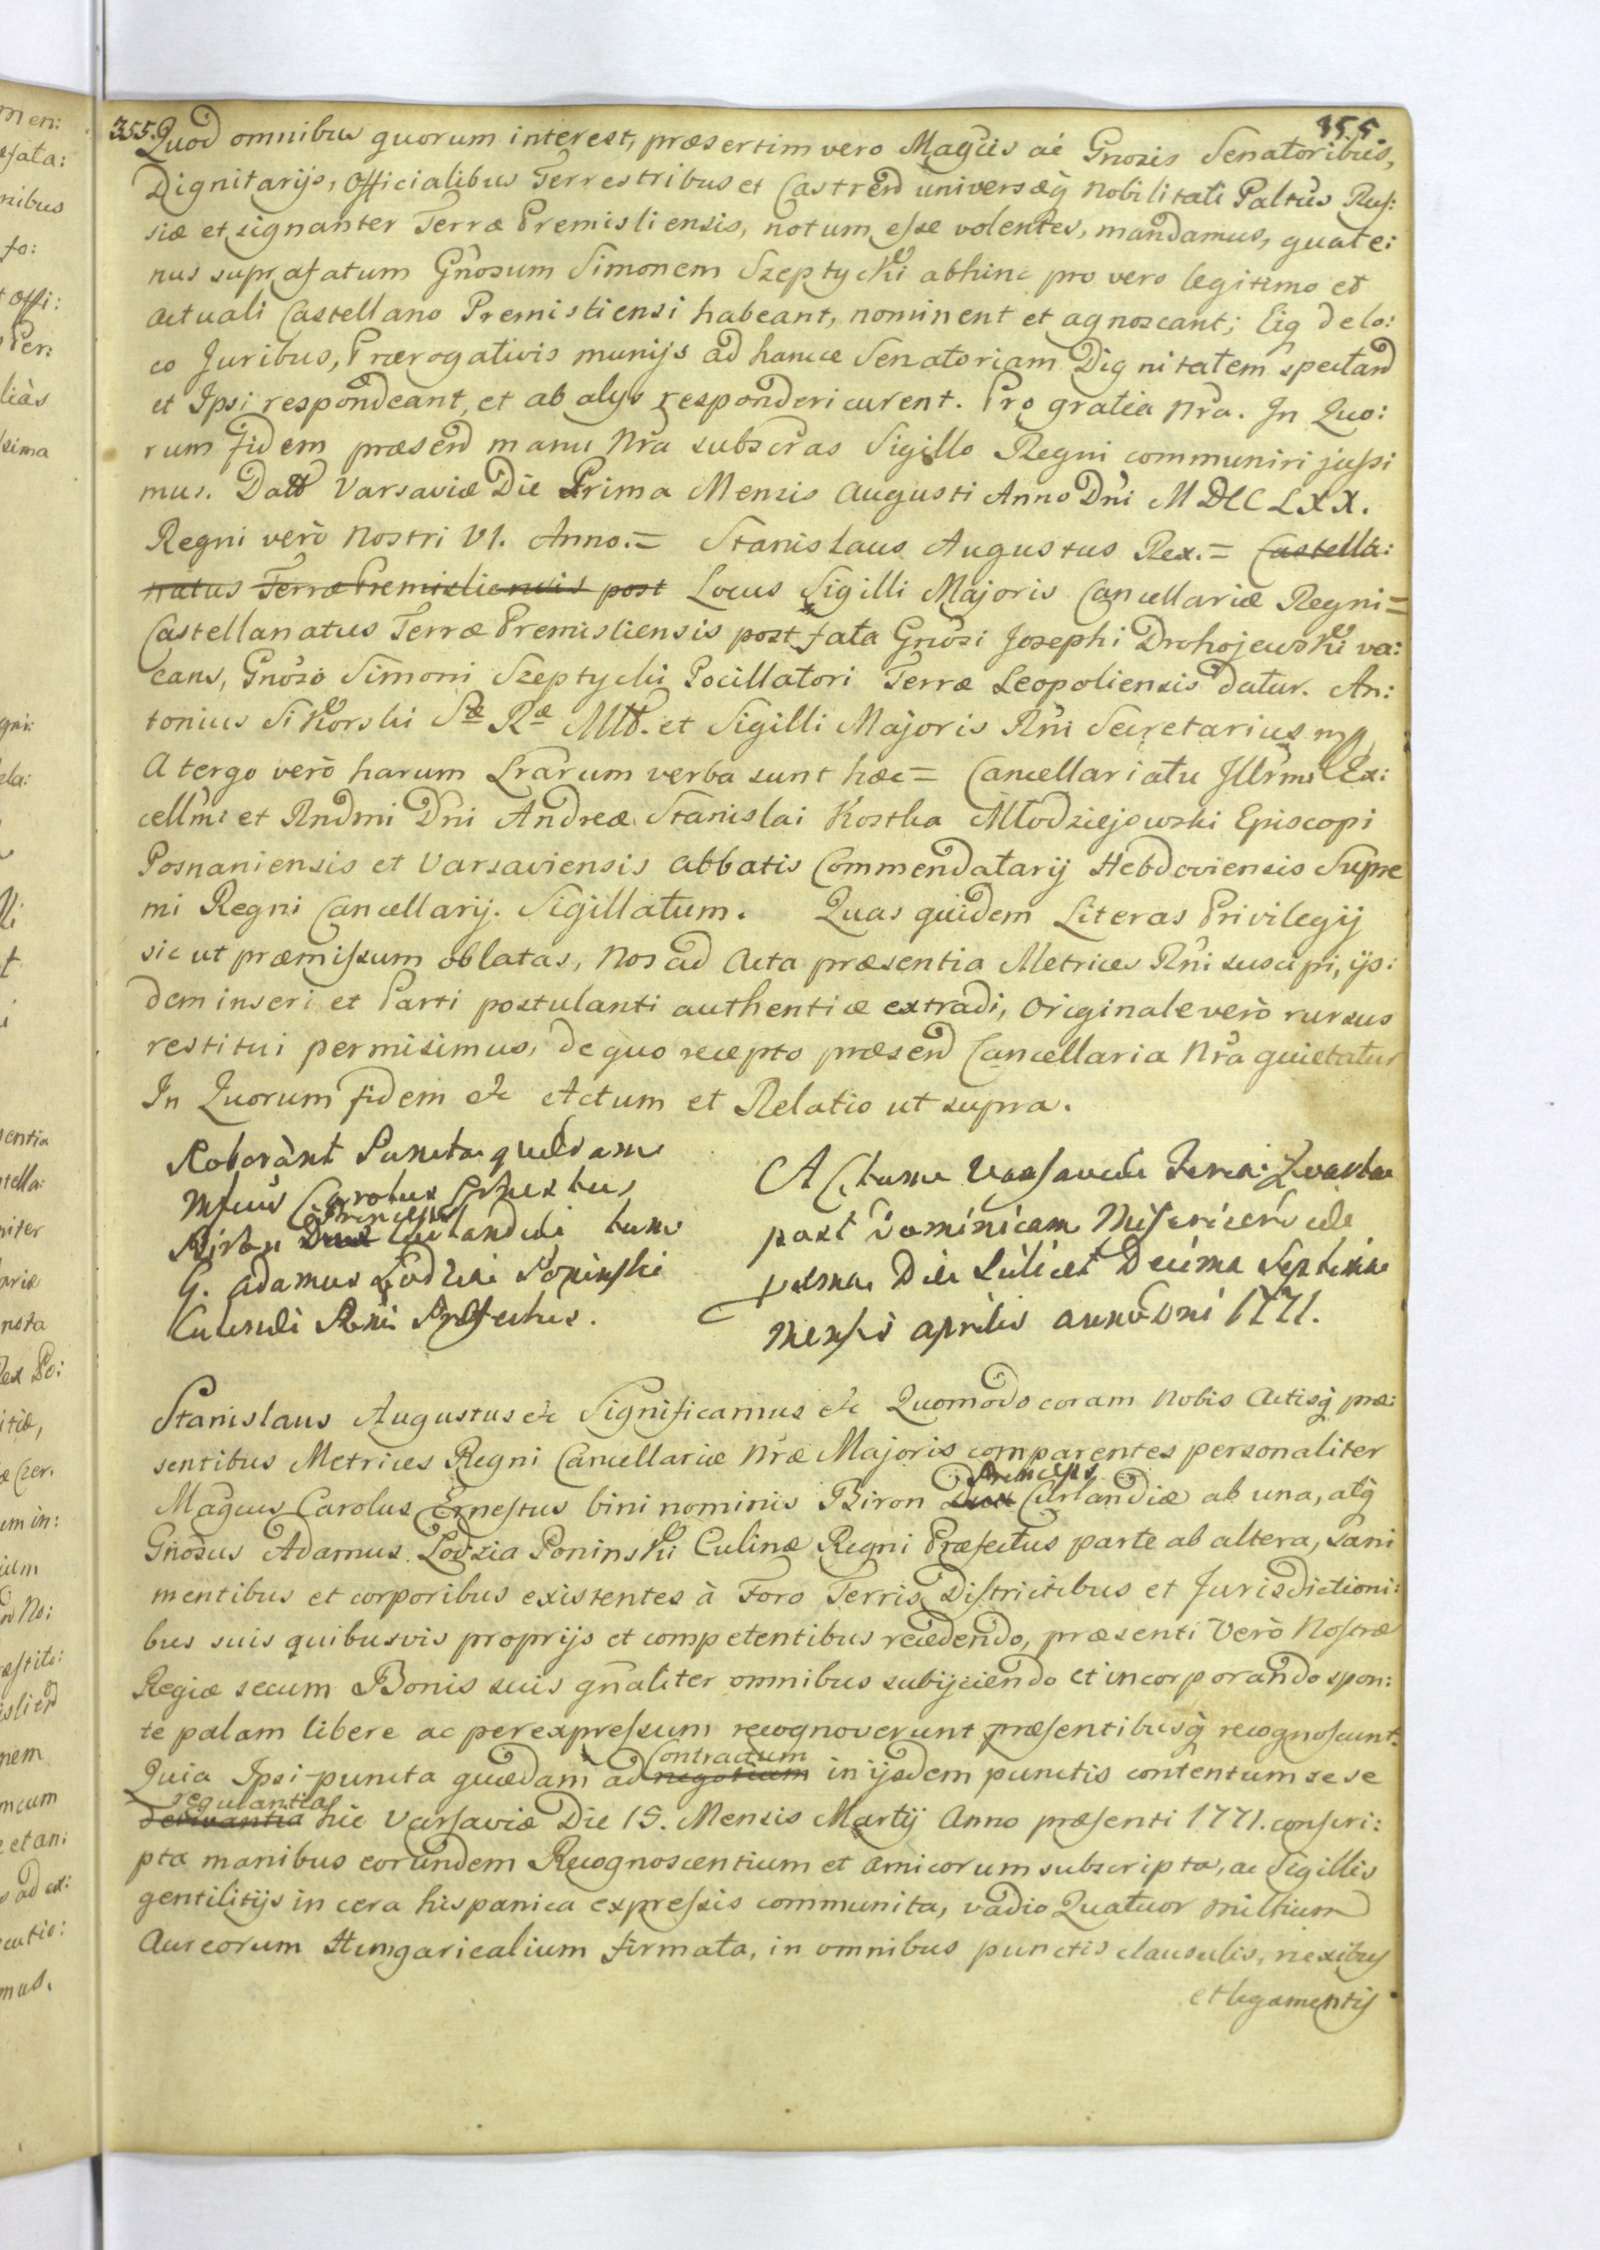 355. 355
Quod omnibus quorum interest, præsertim vero Magcis ac Gnosis Senatoribus,
Dignitarijs, Officialibus Terrestribus et Castren universæq Nobilitati Paltus Rus:
siæ et signanter Terræ Premisliensis, notum esse volentes, mandamus, quate:
nus suprafatum Gnosum Simonem Szeptycki abhinc pro vero legitimo et
actuali Castellano Premisliensi habeant, nominent et agnoscant; Eiq de lo:
co Juribus, Prærogativis munijs ad hancce Senatoriam Dignitatem spectand
et Ipsi respondeant, et ab alijs responderi curent. Pro gratia Nra. In Quo:
rum fidem præsen manu Nra subscras Sigillo Regni communiri jussi
mus. Datt Varsaviæ Die Prima Mensis Augusti Anno Dni MDCCLXX.
Regni verò Nostri VI. Anno.= Stanislaus Augustus Rex.= Castella:
natus Terræ Premisliensis post Locus Sigilli Majoris Cancellariæ Regni=
Castellanatus Terræ Premisliensis post fata Gnosi Josephi Drohojewski va:
cans, Gnoso Simoni Szeptycki Pocillatori Terræ Leopoliensis datur. An:
tonius Sikorski Sæ Ræ Mtt. et Sigilli Majoris Rni Secretarius mp
A tergo verò harum Lrarum verba sunt hæc= Cancellariatu Illrmi Ex:
cellmi et Rndmi Dni Andreæ Stanislai Kostka Młodziejowski Episcopi
Posnaniensis et Varsaviensis Abbatis Commendatarij Hebdoviensis Supre
mi Regni Cancellarij. Sigillatum. Quas quidem Literas Privilegij
sic ut præmissum oblatas, Nos ad Acta præsentia Metrices Rni suscipi, ijs:
dem inseri et Parti postulanti authenticæ extradi, Originale verò rursus
restitui permisimus, de quo recepto præsen Cancellaria Nra quietatur
In Quorum fidem etc Actum et Relatio ut supra.
Roborant Puncta quædam
Mfcus Carolus Ernestus
Princeps
Biron Dux Curlandiæ tum
G. Adamus Lodzia Poninski
Culinæ Rni Præfectus.
Actum Varsaviæ Feria Quarta
post Dominicam Misericordiæ
proxima Die scilicet Decima Septima
Mensis Aprilis anno Dni 1771.
Stanislaus Augustus etc Significamus etc Quomodo coram Nobis Actisq præ:
sentibus Metrices Regni Cancellariæ Nræ Majoris comparentes personaliter
Princeps
Magcus Carolus Ernestus bini nominis Biron Dux Curlandiæ ab una, atq
Gnosus Adamus Lodzia Poninski Culinæ Regni Præfectus parte ab altera, sani
mentibus et corporibus existentes à Foro Terris Districtibus et Jurisdictioni:
bus suis quibusvis proprijs et competentibus recedendo, præsenti Verò Nostræ
Regiæ secum Bonis suis gnaliter omnibus subijciendo et incorporando spon:
te palam libere ac per expressum recognoverunt præsentibusq recognoscunt.
Contractum
Quia Ipsi puncta quædam ad negotium in ijsdem punctis contentum sese
regulantia
derivantia hic Varsaviæ Die 15. Mensis Martij Anno præsenti 1771. conscri:
pta manibus eorundem Recognoscentium et amicorum subscripta, ac Sigillis
gentilitijs in cera hispanica expressis communita, vadio Quatuor millium
Aureorum Hungaricalium firmata, in omnibus punctis clausulis, nexibus
et ligamentis